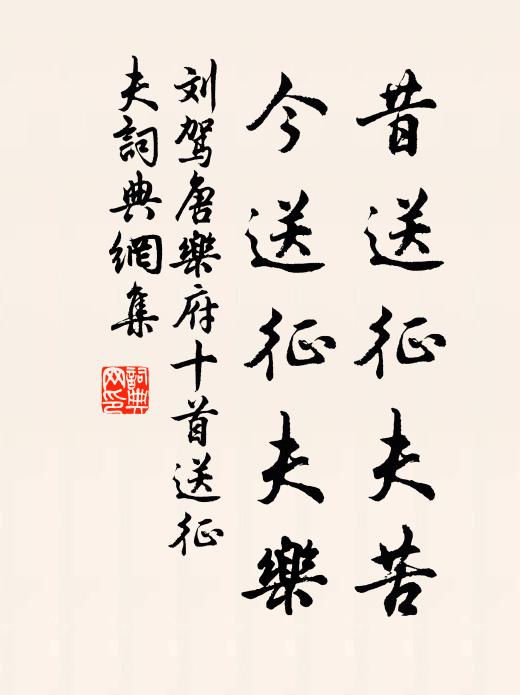 昔送征夫苦
今送征夫樂
刘駕唐樂府十首送征
夫詞典網集
詞典
网印